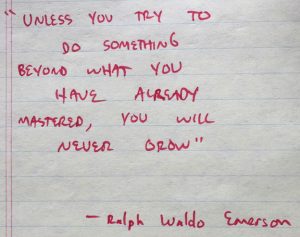 "UNLESS YOU TRY TO
DO SOMETHING
BEYOND WHAT YOU
HAVE ALREADY
MASTERED, YOU WILL
NEVER GROW"
- Ralph Waldo Emerson